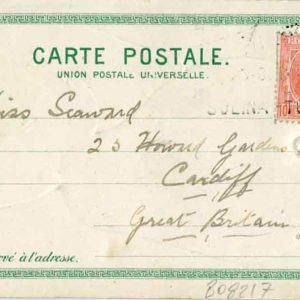 CARTE POSTALE.
UNION POSTALE UNIVERSELLE.
iss Seaward
SULINA
23 Howard Gardens
Cardiff
Great Britain
rvé à l'adresse.
809217